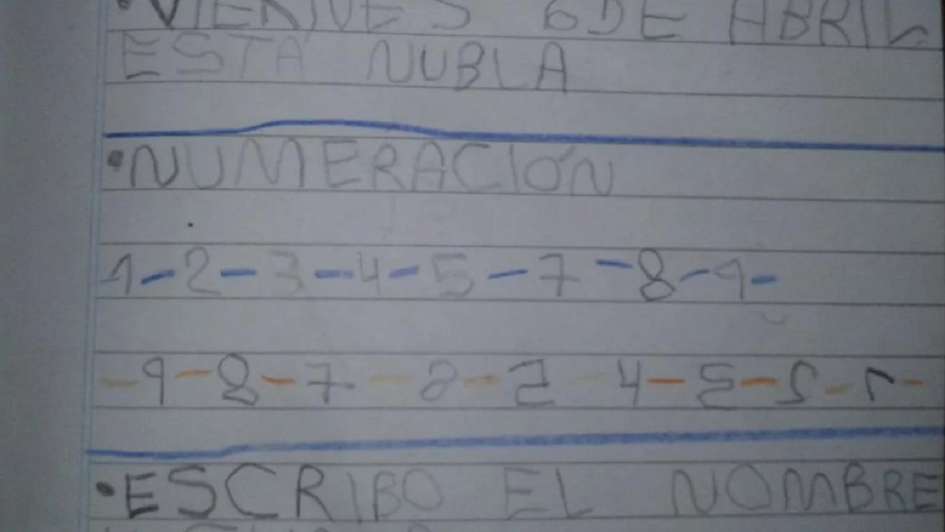 •VIERNES 6 DE ABRIL
ESTÁ NUBLA
•NUMERACIÓN
1-2-3-4-5-7-8-9-
-9-8-7-6-5-4-3-2-1-
•ESCRIBO EL NOMBRE